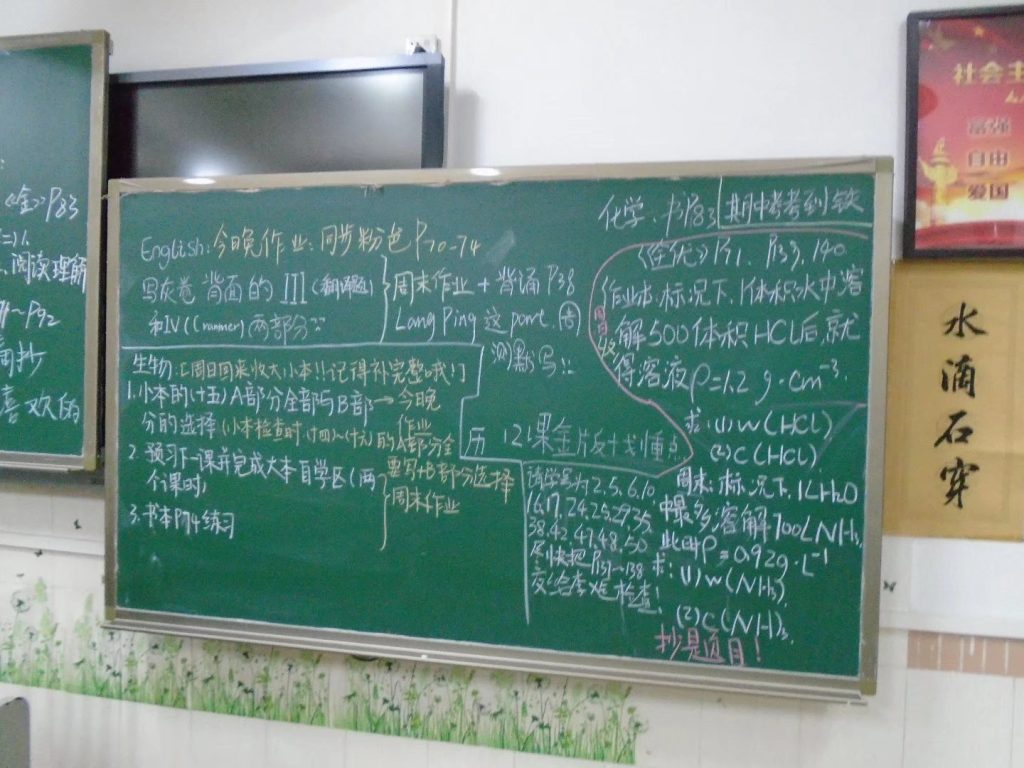 《金》P83
阅读理解
~P92
周抄
喜欢的
English:今晚作业:同步粉色P70-74
写灰卷背面的III(翻译题)
和IV(Grammar)两部分
周末作业+背诵P38
Lang Ping这part.周
测默写!!
生物:[周日回来收大小本!!记得补完整哦!]
1.小本的(十五)A部分全部与B部→今晚作业
分的选择(小本检查时,(十四)~(十六)的A部分全
要写+B部分选择
2.预习下一课并完成大本自学区(两
个课时)
3.书本P74练习
周末作业
历 12课金版+划重点
请学号为2,5,6,10
16,17,24,25,29,35
38,42,47,48,50
尽快把P137~138
交给李 检查!
化学:书P83 期中考考到铁
《全优》P71. P139,140
作业本:标况下,1体积水中溶
解500体积HCl后,就
得溶液ρ=1.2g·cm⁻³.
求:(1)w(HCl)
(2)c(HCl)
周末:标况下,1LH₂O
中最多溶解700LNH₃
此时ρ=0.92g·L⁻¹
求:(1)w(NH₃)
(2)c(NH₃)
抄题目!
社会主
富强
自由
爱国
水滴石穿